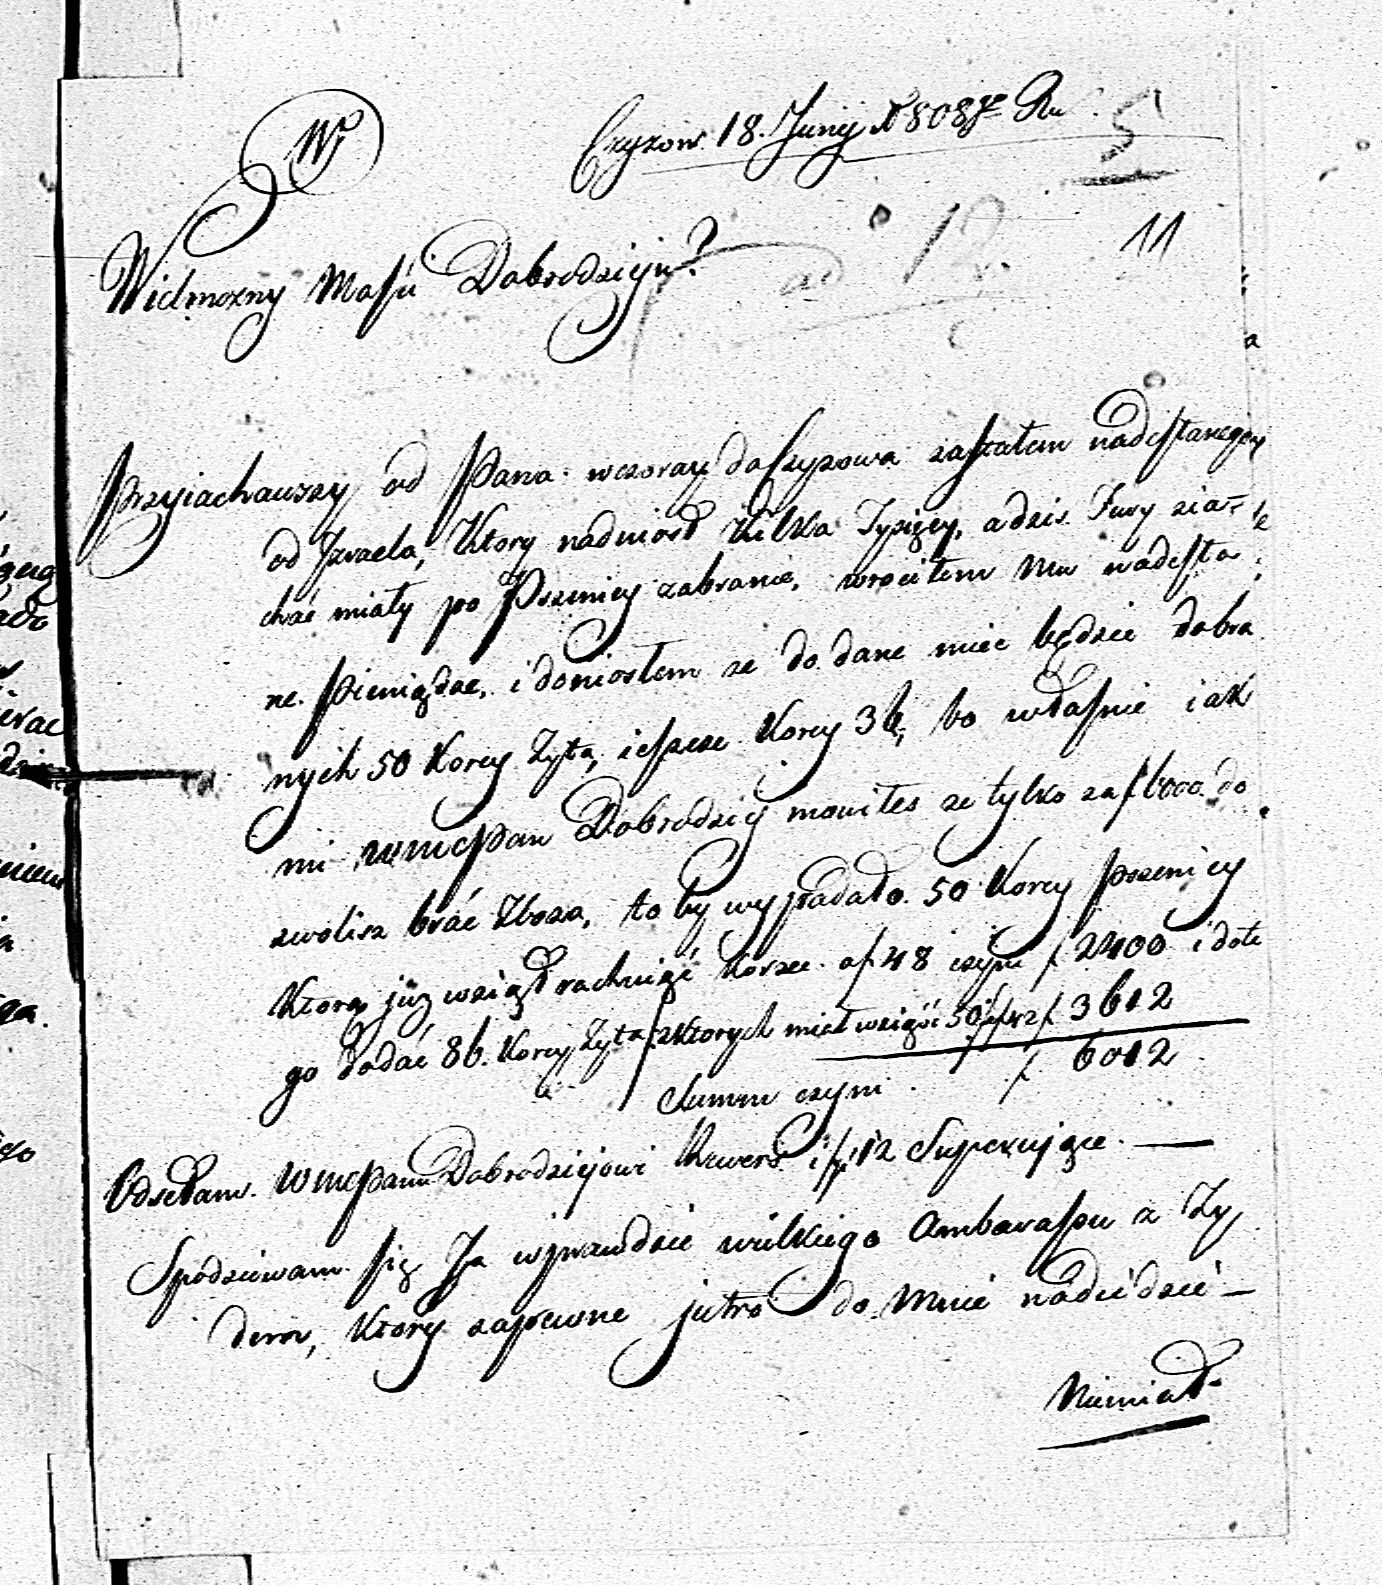 Czyzow 18. Junij 1808go Ru
5
Wo
11
ad 12.
Wielmozny Mosci Dobrodzieju?
Przyiachawszy od Pana wczoray do Czyzowa zastałem nadesłanego
od Izraela, Ktory nadniosł Kilka Tysięcy, a dzis Fury zia=
chać miały po Pszenicy zabranie, wrociłem Mu nadesła
ne Pieniądze, i doniosłem ze do dane miec będzie dobra
nych 50 Korcy Zyta, ieszcze Korcy 36, bo własnie iak
mi WMcPan Dobrodziey mowiłes ze tylko za f 6000 do
zwolisz brać Zboza, to by wypadało 50 Korcy pszenicy
Którą juz wziął rachuiąć Korzec a f 48 czyni f 2400 i do te
go dodać 86. Korcy Zyta z Ktorych miał wziąść 50 a f 42 f 3612
Summ czyni f 6012
Odsełam WMcPanu Dobrodziejowi Rewers i f 12 Superujące
Spodziewam się Ja wprawdzie wielkiego Ambarassu z Zy
dem, Ktory zapewne jutro do Mnie nadeidzie
Niemiał